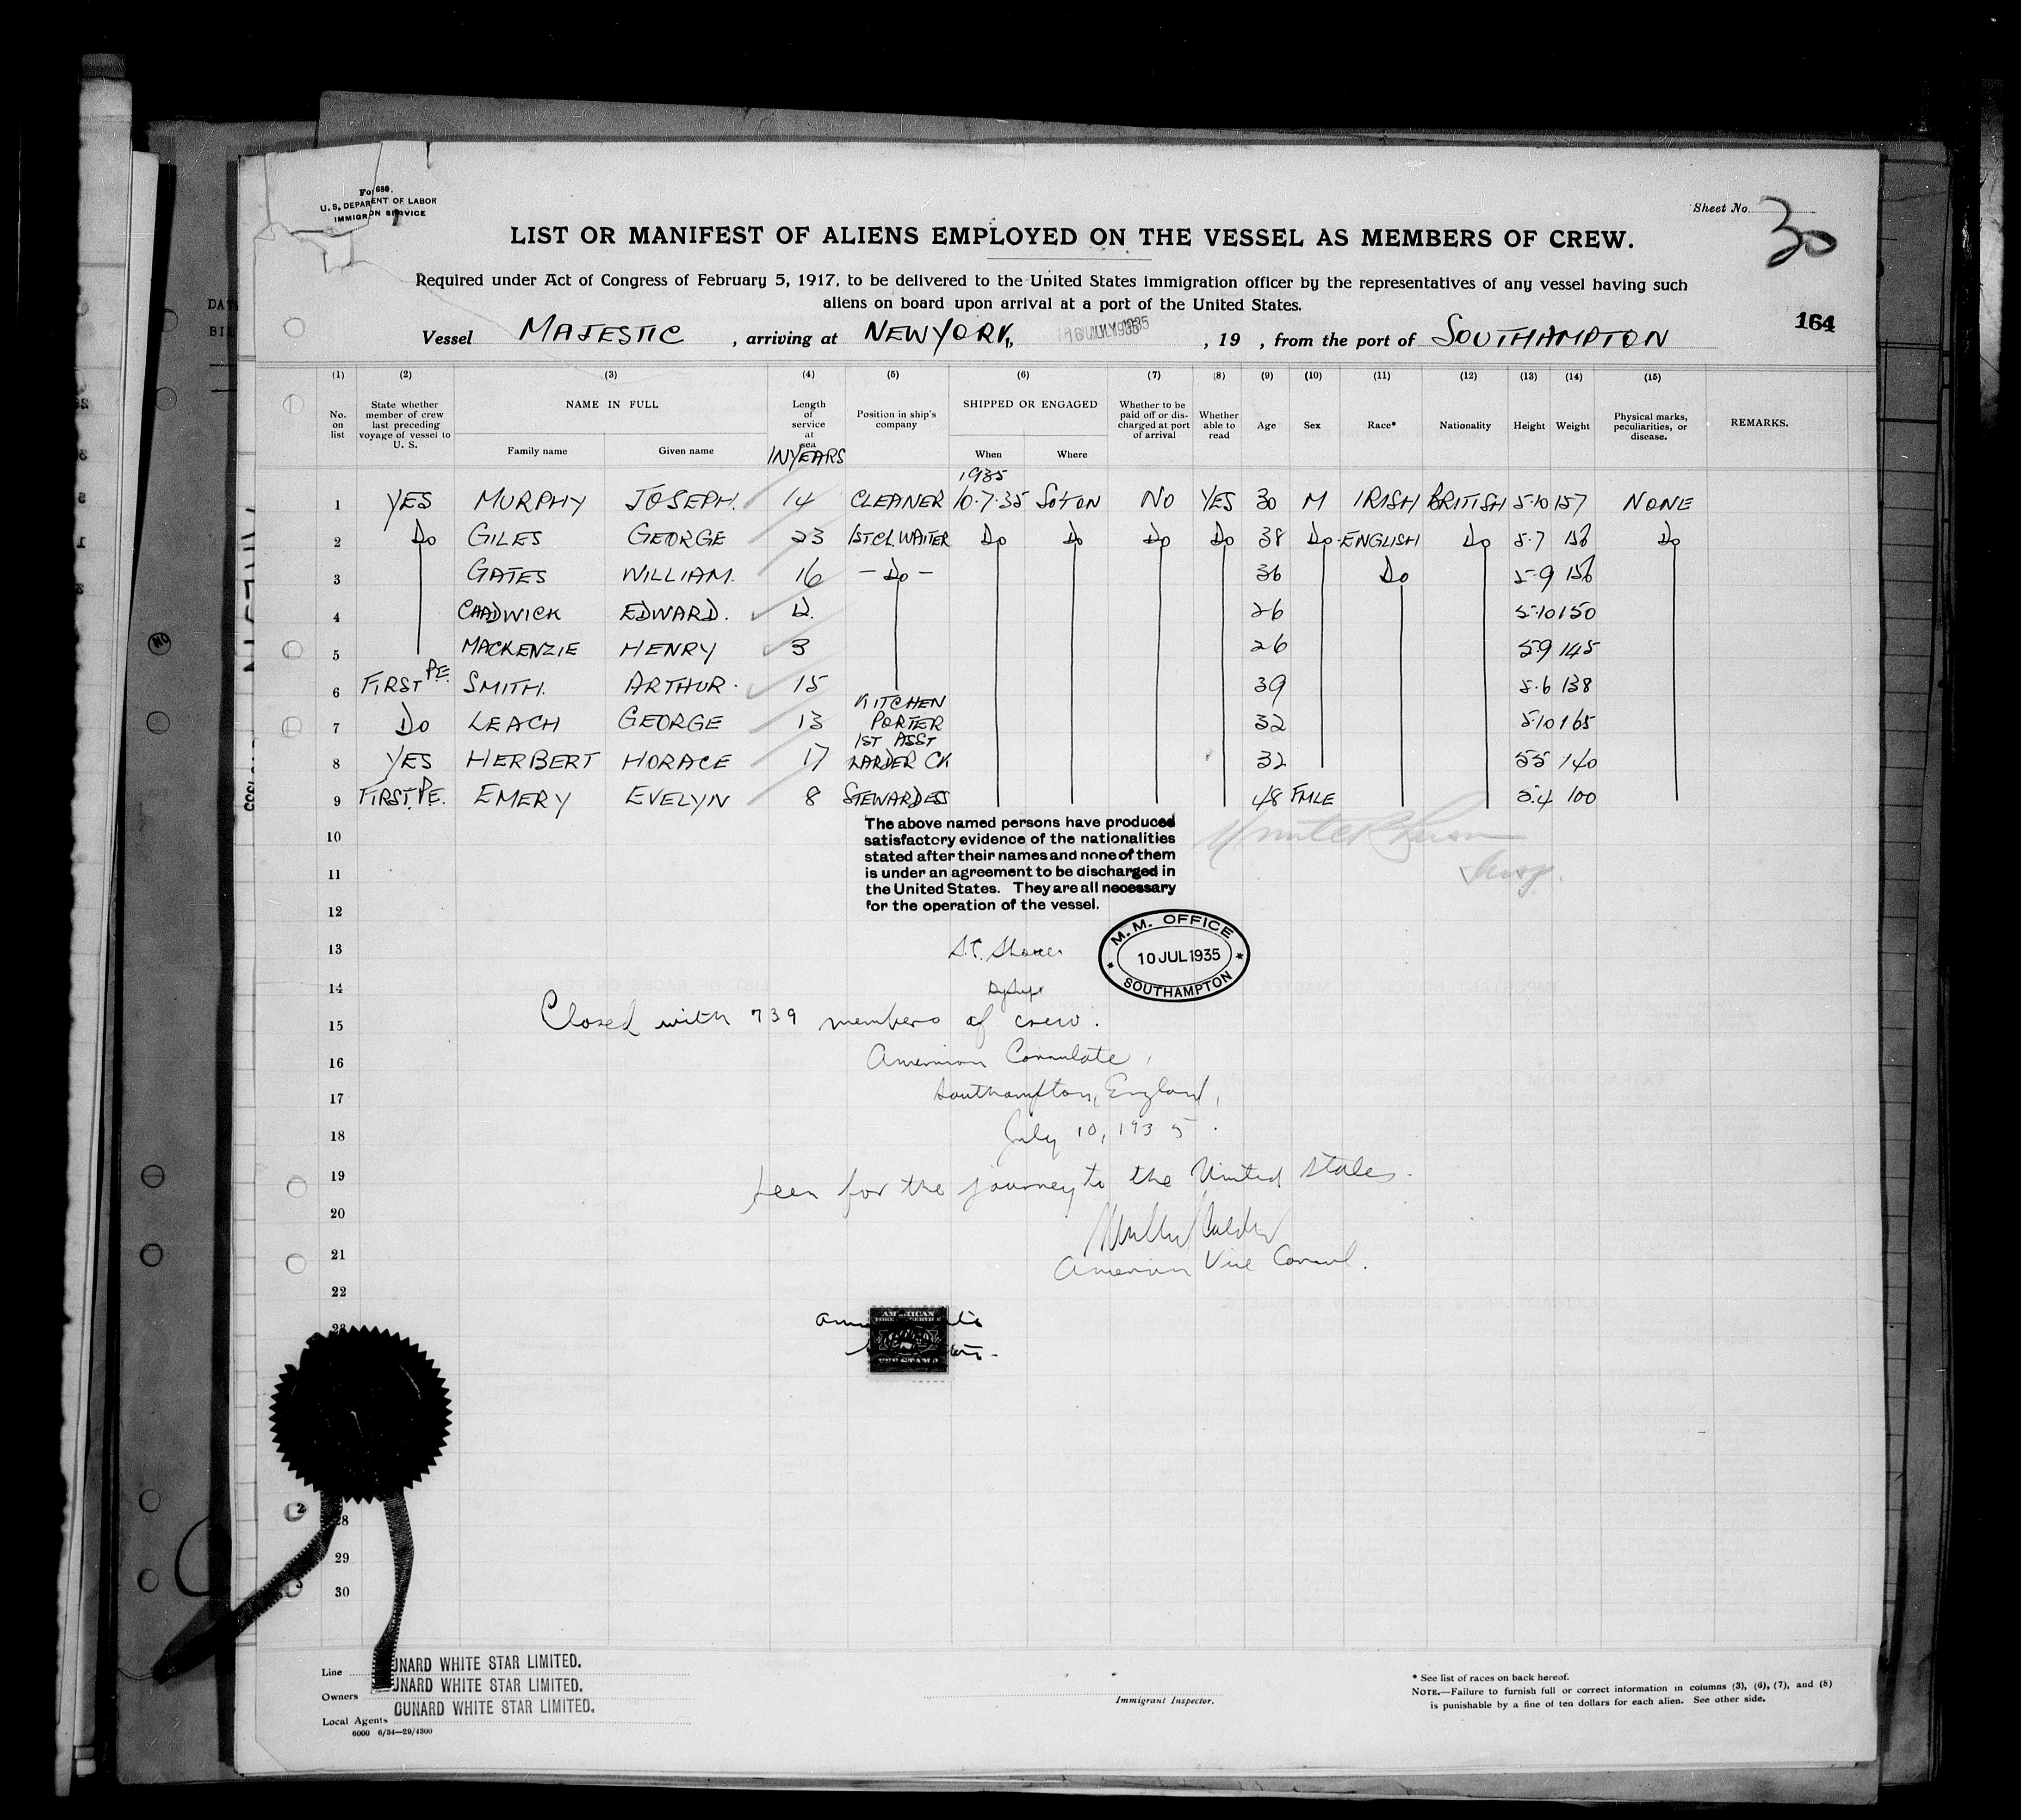 Fo 680.
U. S. DEPARENT OF LABOR
IMMIGRON SERVICE
Sheet No. 30
LIST OR MANIFEST OF ALIENS EMPLOYED ON THE VESSEL AS MEMBERS OF CREW.
Required under Act of Congress of February 5, 1917, to be delivered to the United States immigration officer by the representatives of any vessel having such
aliens on board upon arrival at a port of the United States.
164
Vessel MAJESTIC , arriving at NEW YORK, JULY 1935 , 19 , from the port of SOUTHAMPTON
(1) (2) (3) (4) (5) (6) (7) (8) (9) (10) (11) (12) (13) (14) (15)
No. on list State whether member of crew last preceding voyage of vessel to U. S. NAME IN FULL Family name Given name Length of service at sea IN YEARS Position in ship's company SHIPPED OR ENGAGED When Where Whether to be paid off or discharged at port of arrival Whether able to read Age Sex Race* Nationality Height Weight Physical marks, peculiarities, or disease. REMARKS.
1935
1 YES MURPHY JOSEPH. 14 CLEANER 10.7.35 SOTON NO YES 30 M IRISH BRITISH 5.10 157 NONE
2 DO GILES GEORGE 23 1ST CL. WAITER DO DO DO DO 38 DO ENGLISH DO 5.7 156 DO
3 GATES WILLIAM. 16 - DO - 36 DO 5-9 156
4 CHADWICK EDWARD. 12. 26 5.10 150
5 MACKENZIE HENRY 3 26 5.9 145
6 FIRST P.E. SMITH. ARTHUR. 15 39 5.6 138
7 DO LEACH GEORGE 13 KITCHEN PORTER 32 5.10 165
8 YES HERBERT HORACE 17 1ST ASST LARDER CK 32 5.5 140
9 FIRST. P.E. EMERY EVELYN 8 STEWARDESS 48 FMLE 5.4 100
The above named persons have produced
satisfactory evidence of the nationalities
stated after their names and none of them
is under an agreement to be discharged in
the United States. They are all necessary
for the operation of the vessel.
10
11
12
M. M. OFFICE
10 JUL 1935
SOUTHAMPTON
13
14
15 Closed with 739 members of crew.
16 American Consulate,
17 Southampton, England,
18 July 10, 1935.
19 Seen for the journey to the United States.
20
21 American Vice Consul.
22
23
AMERICAN
FOREIGN SERVICE
FEE STAMP
28
29
30
Line UNARD WHITE STAR LIMITED.
Owners UNARD WHITE STAR LIMITED.
Local Agents CUNARD WHITE STAR LIMITED.
6000 6/34—29/4300
Immigrant Inspector.
* See list of races on back hereof.
NOTE.—Failure to furnish full or correct information in columns (3), (6), (7), and (8)
is punishable by a fine of ten dollars for each alien. See other side.